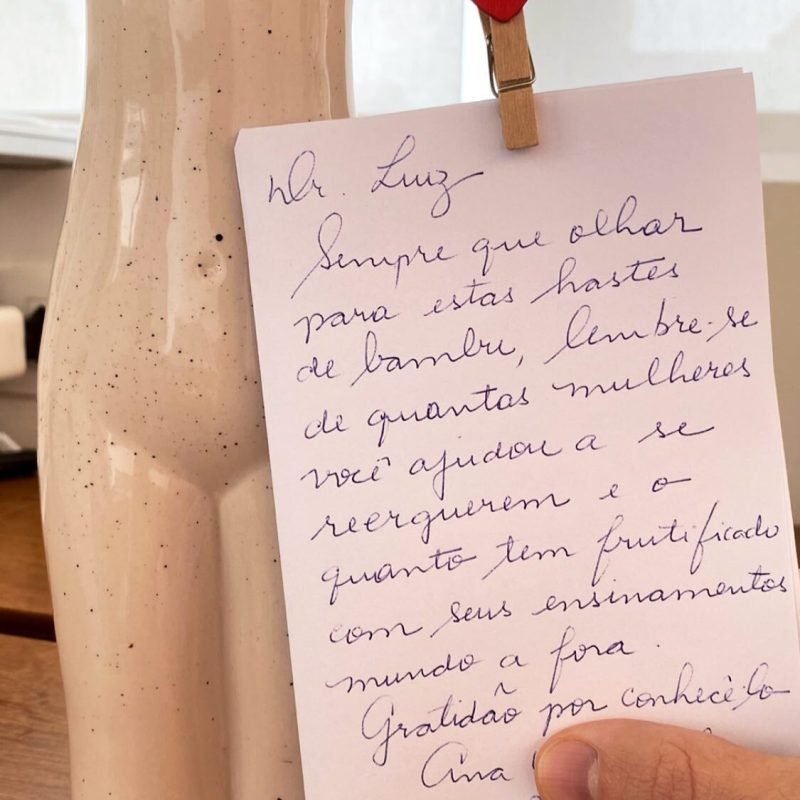 Dr. Luiz
Sempre que olhar
para estas hastes
de bambu, lembre-se
de quantas mulheres
você ajudou a se
reerguerem e o
quanto tem frutificado
com seus ensinamentos
mundo a fora.
Gratidão por conhecê-lo
Ana